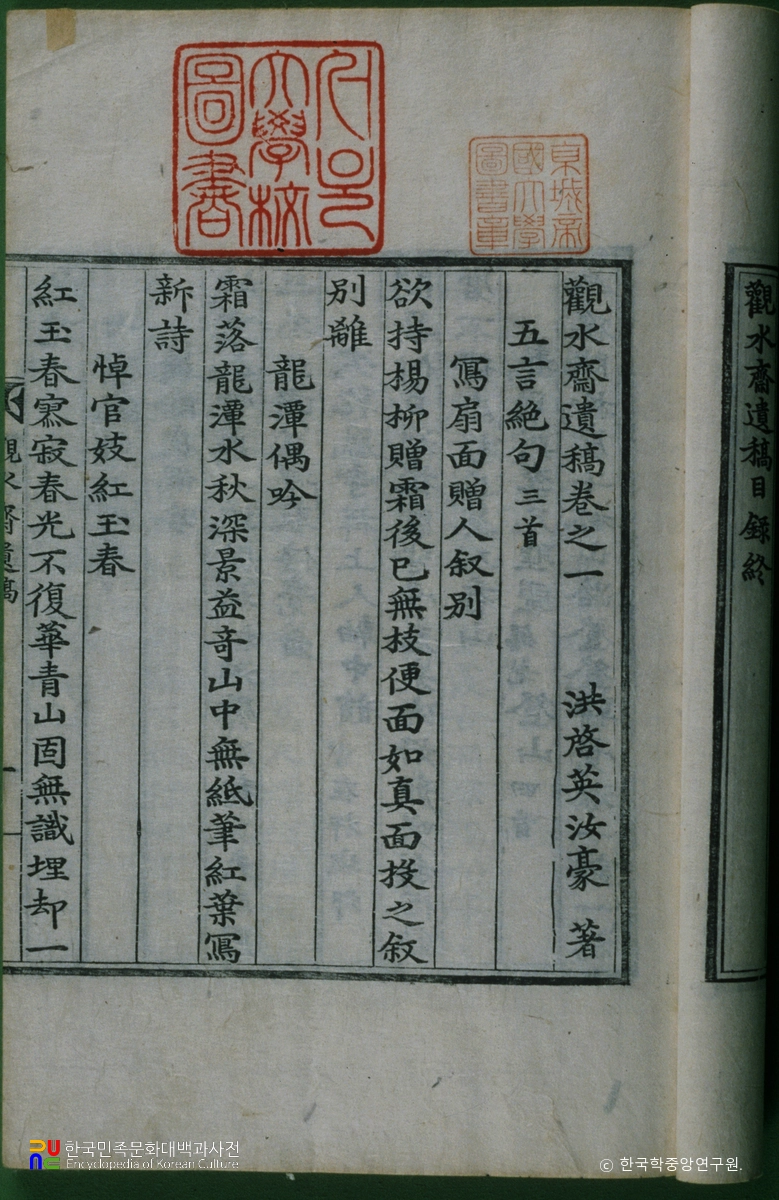 觀水齋遺稿目錄終
京城帝
國大學
圖書章
서울
大學校
圖書
觀水齋遺稿卷之一 洪啓英汝豪 著
五言絶句 三首
冩扇面贈人叙别
欲持楊柳贈霜後已無枝便面如真面投之叙
别離
龍潭偶吟
霜落龍潭水秋深景益奇山中無紙筆紅葉冩
新詩
悼官妓紅玉春
紅玉春寥寂春光不復華青山固無識埋却一
觀水齋遺稿
一
한국민족문화대백과사전
Encyclopedia of Korean Culture
© 한국학중앙연구원.